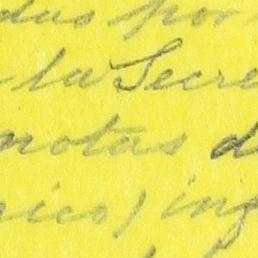 das por
la Secre
notas d
ico) ing